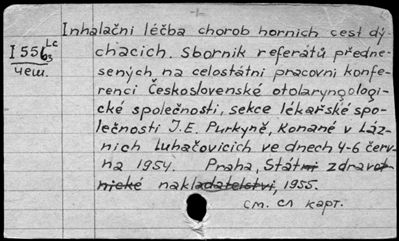 Inhalační léčba chorob horních cest dý-
I 556 Lc
63
чеш.
chacích. Sborník referátů předne-
sených na celostátní pracovní konfe-
renci Československé otolaryngologi-
cké společnosti, sekce lékařské spo-
lečnosti J.E. Purkyně, konané v Láz-
ních Luhačovicích ve dnech 4-6 červ-
na 1954. Praha, Státní zdravot-
nické nakladatelství, 1955.
см. сл карт.